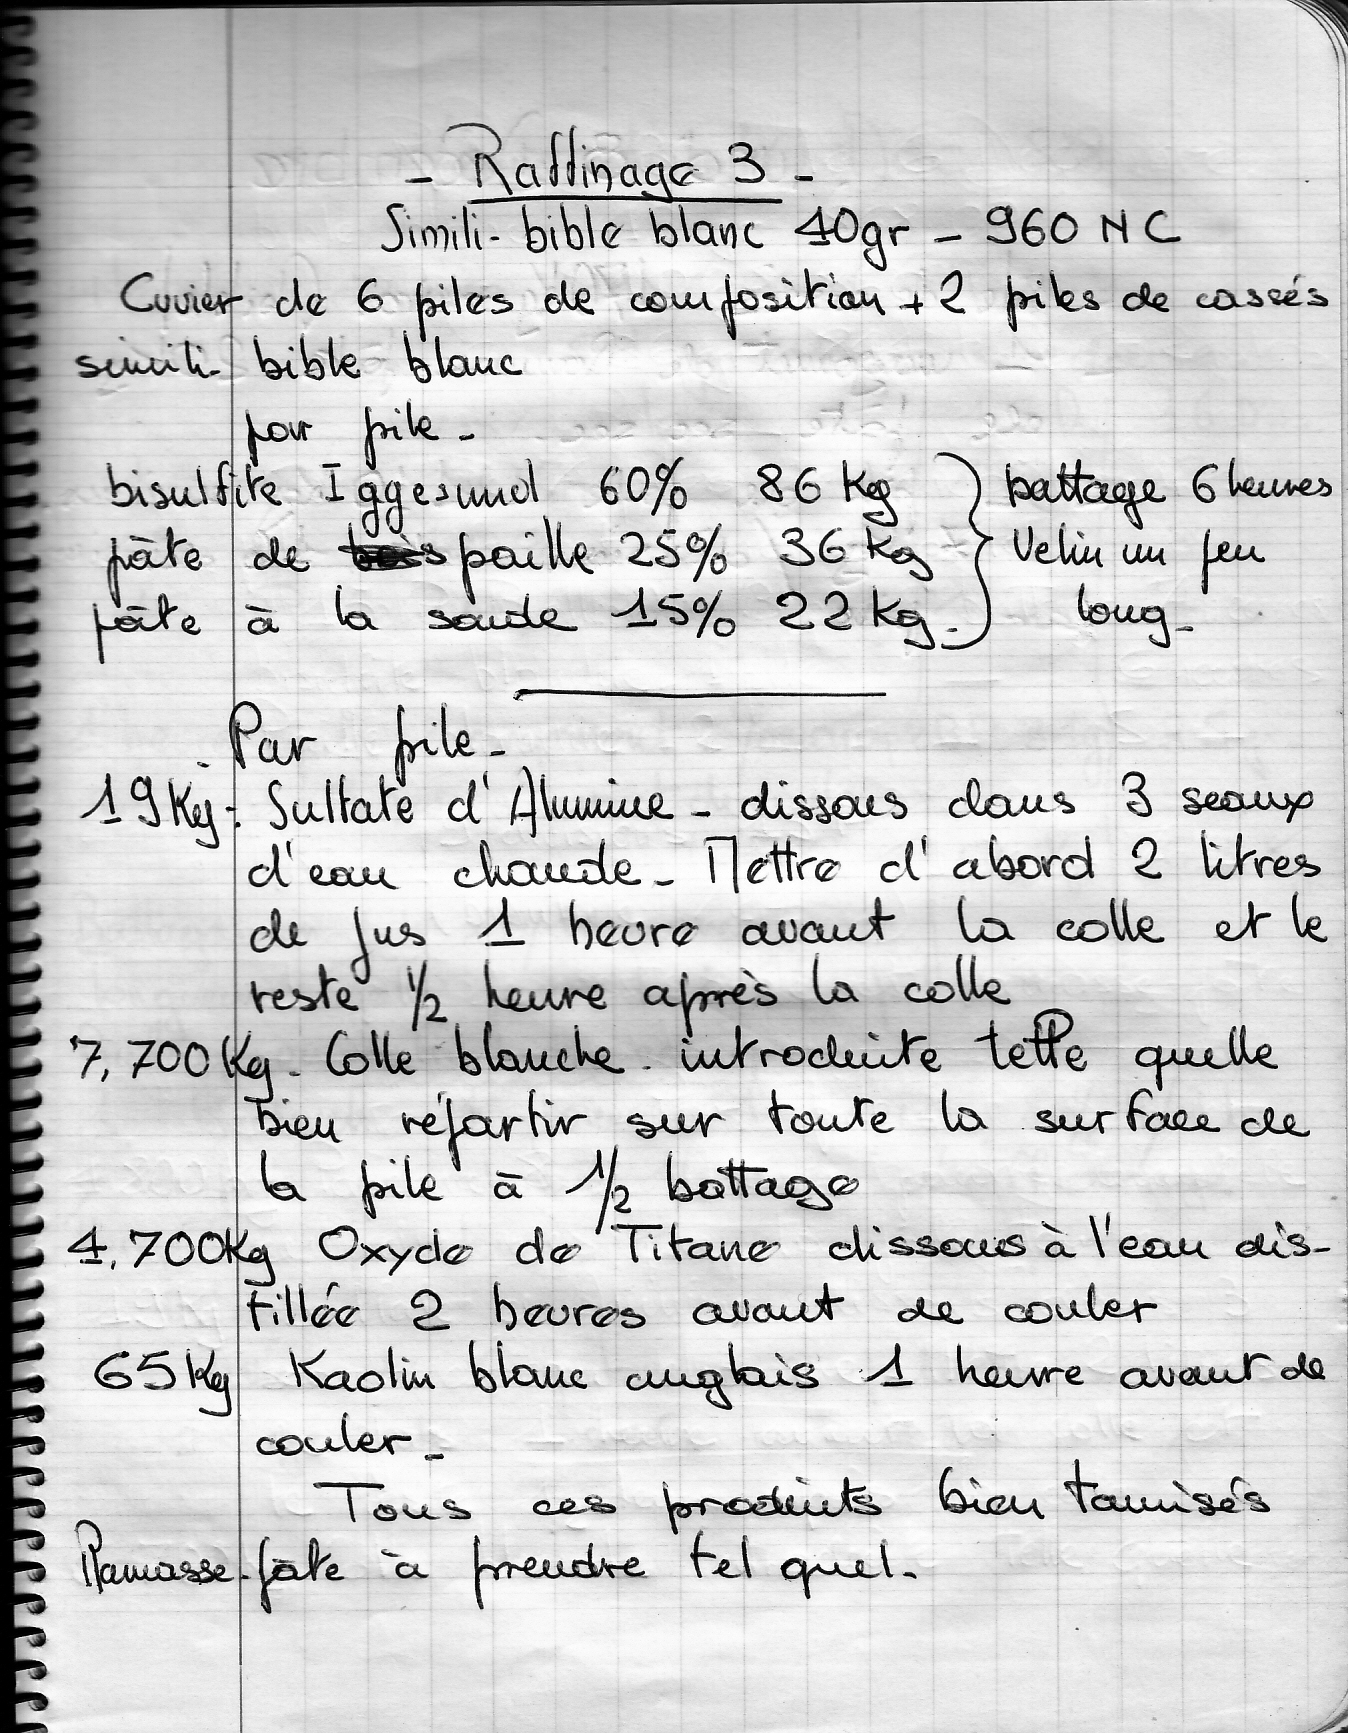 - Raffinage 3 -
Simili-bible blanc 40gr - 960 NC
Cuvier de 6 piles de composition + 2 piles de cassés
simili- bible blanc
par pile -
bisulfite Iggesund 60% 86 Kg } battage 6 heures
pâte de bois paille 25% 36 Kg } Velin un peu
pâte à la soude 15% 22 Kg. } long -
Par pile -
19 Kg : Sulfate d'Alumine - dissous dans 3 seaux
d'eau chaude - Mettre d'abord 2 litres
de jus 1 heure avant la colle et le
reste 1/2 heure après la colle
7,700 Kg - Colle blanche - introduite telle quelle
bien répartir sur toute la surface de
la pile à 1/2 battage
4,700Kg Oxyde de Titane dissous à l'eau dis-
tillée 2 heures avant de couler
65 Kg Kaolin blanc anglais 1 heure avant de
couler -
Tous ces produits bien tamisés
Ramasse-pâte à prendre tel quel -